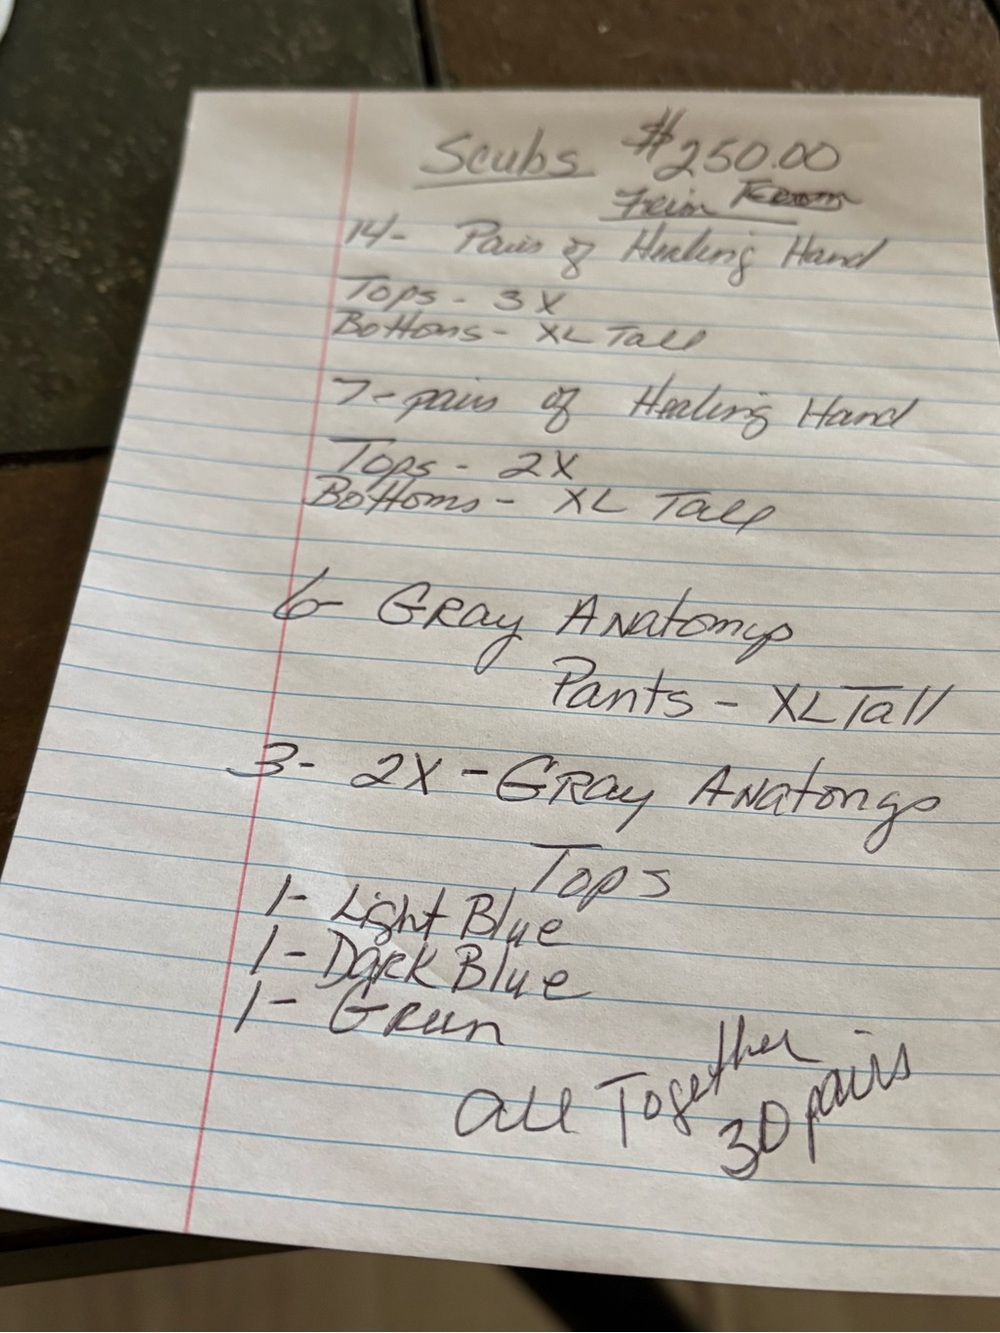 Scubs $250.00
Frim
14- Pairs of Healing Hand
Tops - 3X
Bottoms - XL Tall
7- pairs of Healing Hand
Tops - 2X
Bottoms - XL Tall
6- GRay ANatomy
Pants - XL Tall
3- 2X - GRay ANatomy
Tops
1- Light Blue
1- Dark Blue
1- Green
All Together
30 pairs